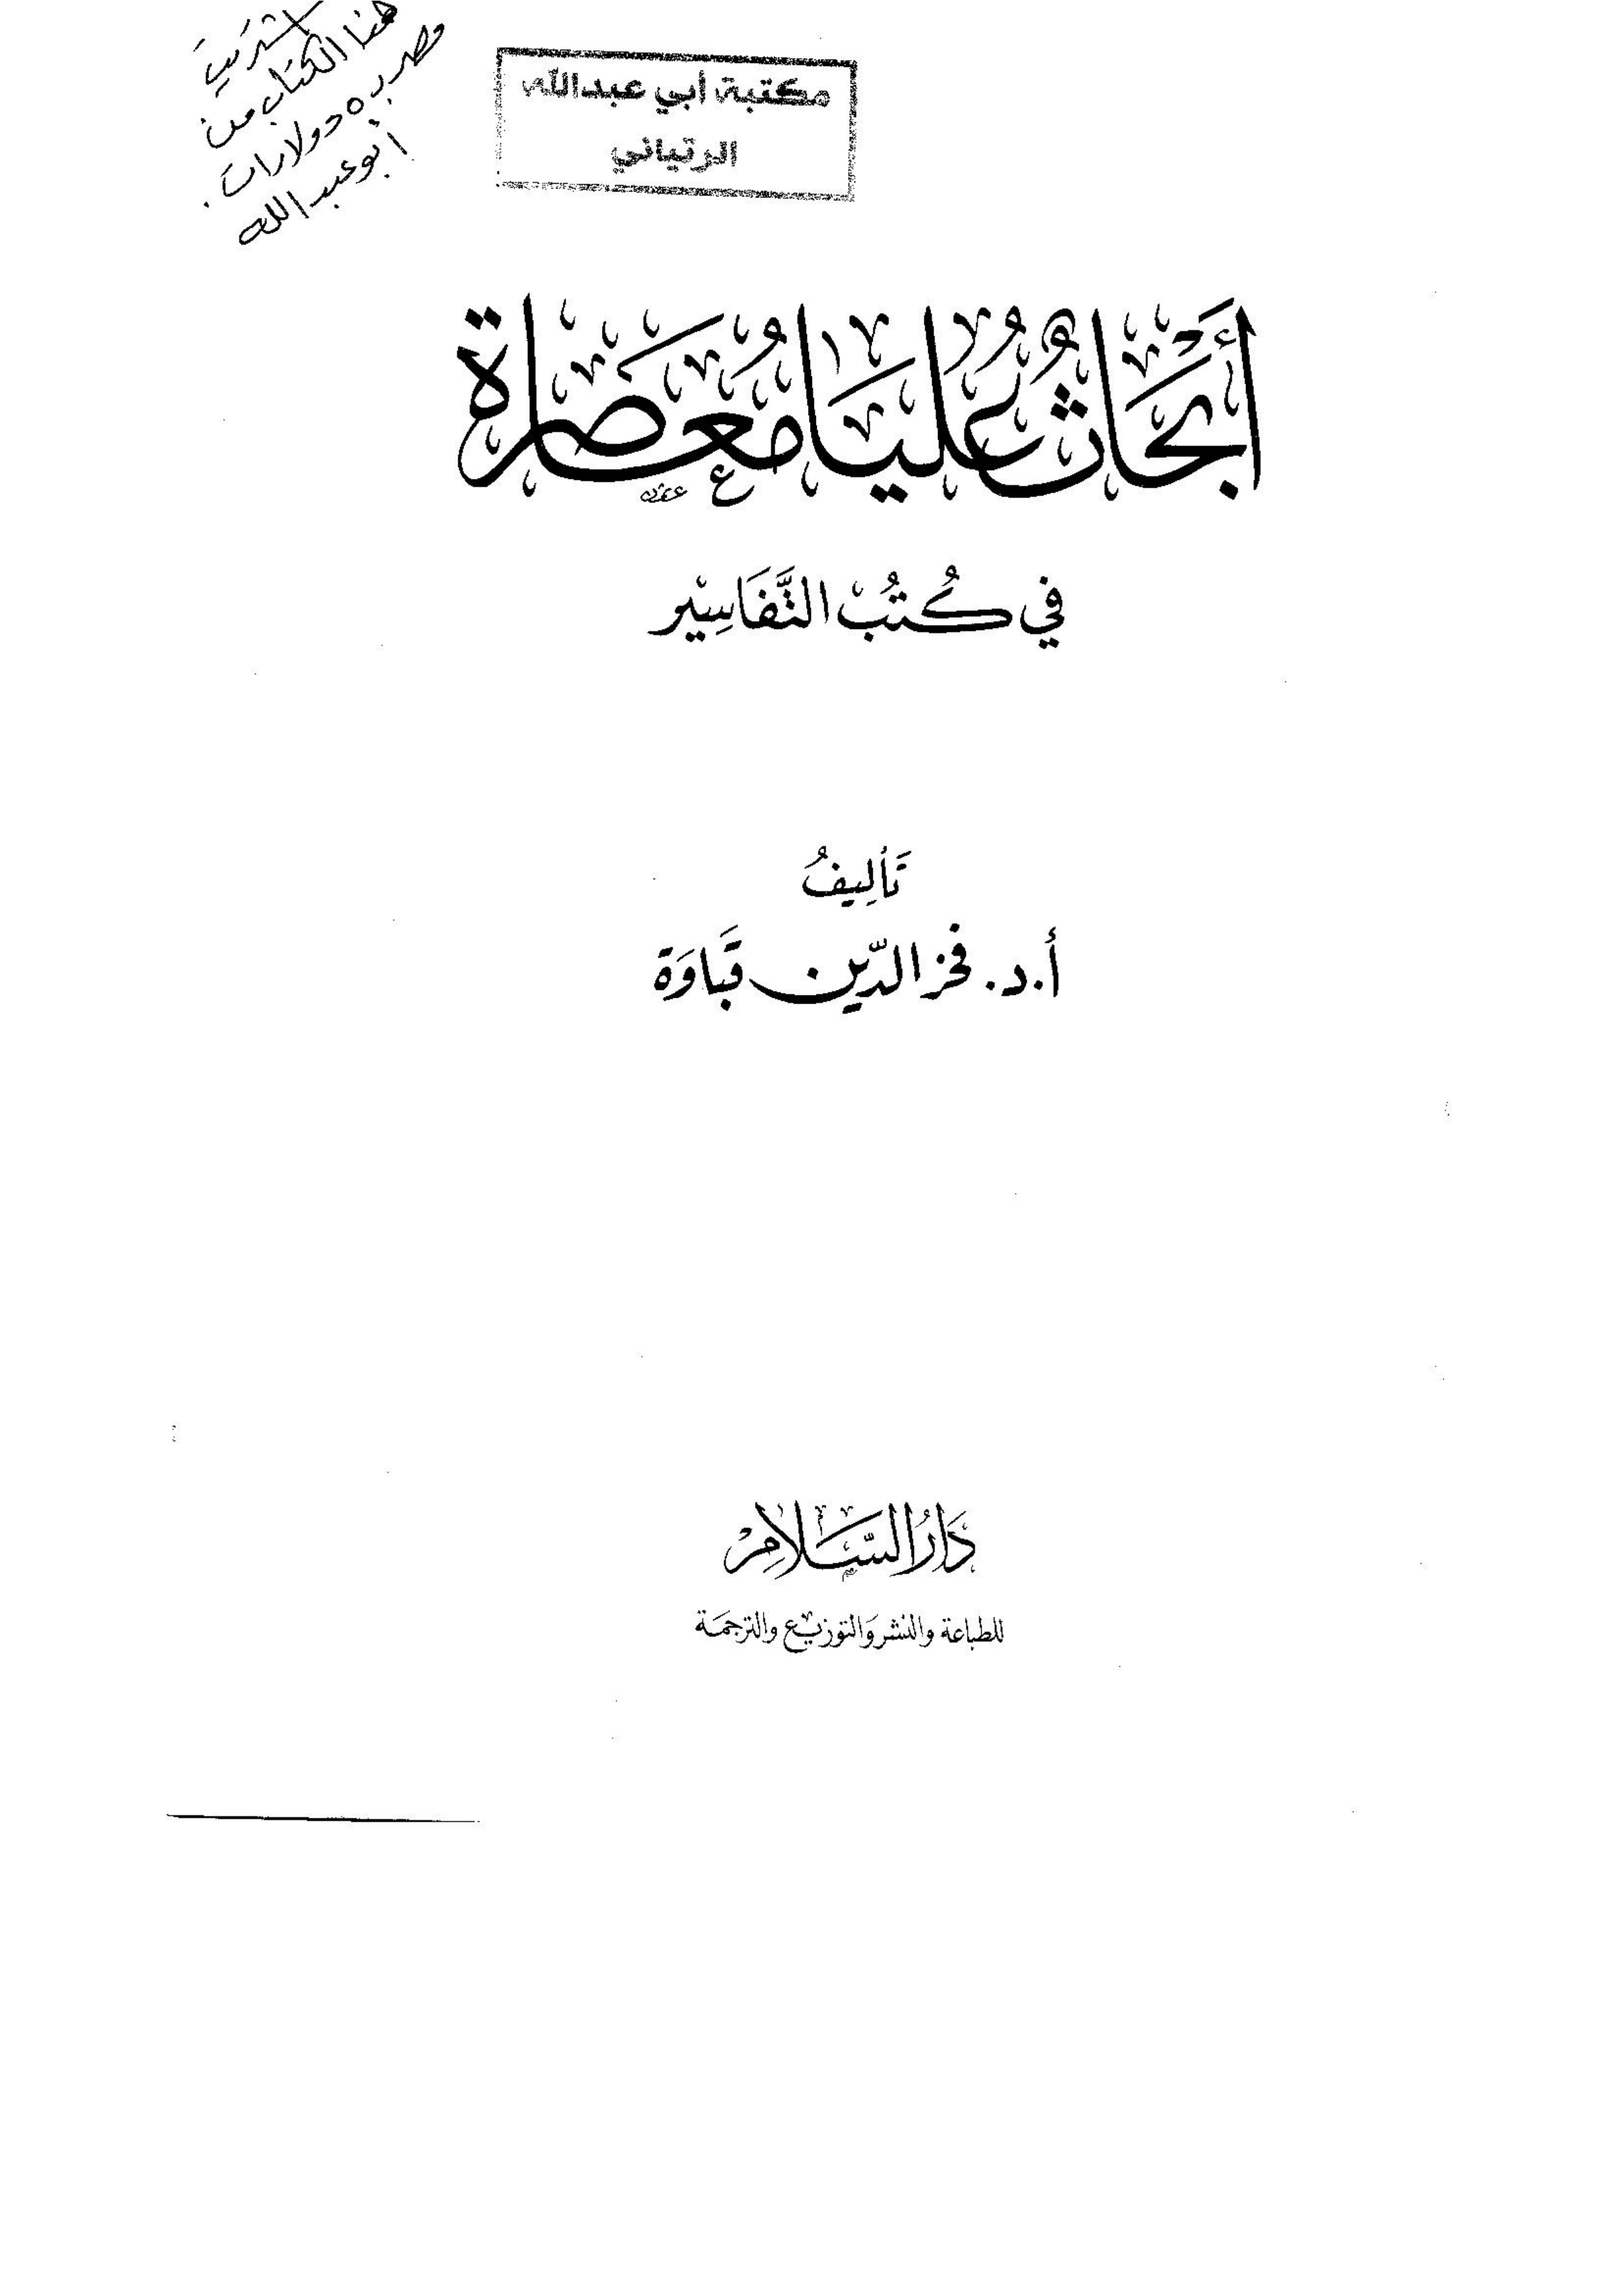 اشتريت
هذا الكتاب من
مصر بـ ٥ دولارات .
ابو عبد الله
مكتبة أبي عبدالله
الزتياني
أَبْحَاثٌ عُليَا مُعَصَّرَة
في كُتُبِ التَّفَاسِيْرِ
تَأليفُ
أ.د. فخر الدّين قَبَاوَة
دَارُ السَّلَامِ
للطباعة والنشر والتوزيع والترجمة